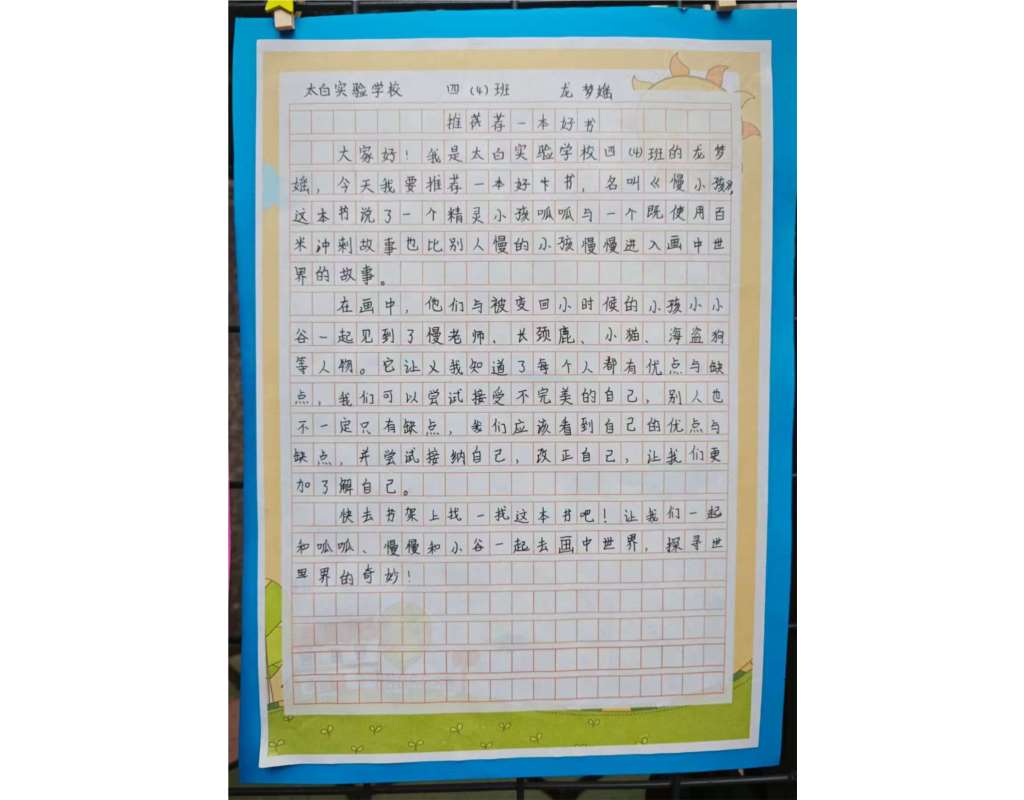 太白实验学校 四(4)班 龙梦媱
推荐荐一本好书
大家好！我是太白实验学校四(4)班的龙梦
媱，今天我要推荐一本好书，名叫《慢小孩》，
这本书说了一个精灵小孩呱呱与一个既使用百
米冲刺故事也比别人慢的小孩慢慢进入画中世
界的故事。
在画中，他们与被变回小时候的小孩小小
谷一起见到了慢老师、长颈鹿、小猫、海盗狗
等人物。它让义我知道了每个人都有优点与缺
点，我们可以尝试接受不完美的自己，别人也
不一定只有缺点，我们应该看到自己的优点与
缺点，并尝试接纳自己，改正自己，让我们更
加了解自己。
快去书架上找一找这本书吧！让我们一起
和呱呱、慢慢和小谷一起去画中世界，探寻世
界的奇妙！